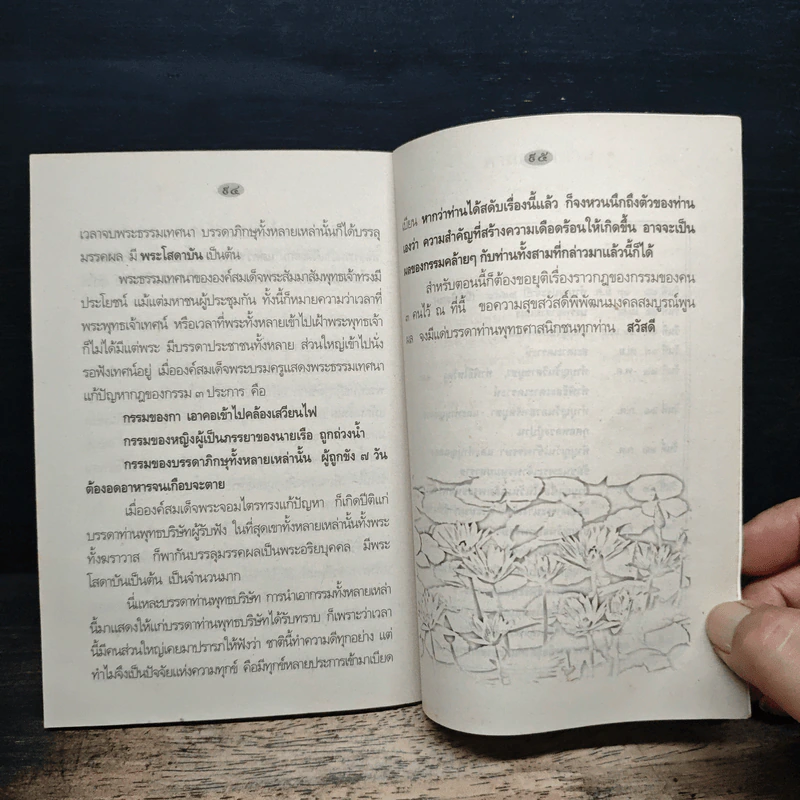 ๙๔
เวลาจบพระธรรมเทศนา บรรดาภิกษุทั้งหลายเหล่านั้นก็ได้บรรลุ
มรรคผล มี พระโสดาบัน เป็นต้น
พระธรรมเทศนาขององค์สมเด็จพระสัมมาสัมพุทธเจ้าทรงมี
ประโยชน์ แม้แต่มหาชนผู้ประชุมกัน ทั้งนี้ก็หมายความว่าเวลาที่
พระพุทธเจ้าเทศน์ หรือเวลาที่พระทั้งหลายเข้าไปเฝ้าพระพุทธเจ้า
ก็ไม่ได้มีแต่พระ มีบรรดาประชาชนทั้งหลาย ส่วนใหญ่เข้าไปนั่ง
รอฟังเทศน์อยู่ เมื่อองค์สมเด็จพระบรมครูแสดงพระธรรมเทศนา
แก้ปัญหากฎของกรรม ๓ ประการ คือ
กรรมของกา เอาคอเข้าไปคล้องเสวียนไฟ
กรรมของหญิงผู้เป็นภรรยาของนายเรือ ถูกถ่วงน้ำ
กรรมของบรรดาภิกษุทั้งหลายเหล่านั้น ผู้ถูกขัง ๗ วัน
ต้องอดอาหารจนเกือบจะตาย
เมื่อองค์สมเด็จพระจอมไตรทรงแก้ปัญหา ก็เกิดปีติแก่
บรรดาท่านพุทธบริษัทผู้รับฟัง ในที่สุดเขาทั้งหลายเหล่านั้นทั้งพระ
ทั้งฆราวาส ก็พากันบรรลุมรรคผลเป็นพระอริยบุคคล มีพระ
โสดาบันเป็นต้น เป็นจำนวนมาก
นี่แหละบรรดาท่านพุทธบริษัท การนำเอากรรมทั้งหลายเหล่า
นี้มาแสดงให้แก่บรรดาท่านพุทธบริษัทได้รับทราบ ก็เพราะว่าเวลา
นี้มีคนส่วนใหญ่เคยมาปรารภให้ฟังว่า ชาตินี้ทำความดีทุกอย่าง แต่
ทำไมจึงเป็นปัจจัยแห่งความทุกข์ คือมีทุกข์หลายประการเข้ามาเบียด
๙๕
เบียน หากว่าท่านได้สดับเรื่องนี้แล้ว ก็จงหวนนึกถึงตัวของท่าน
เองว่า ความสำคัญที่สร้างความเดือดร้อนให้เกิดขึ้น อาจจะเป็น
ผลของกรรมคล้ายๆ กับท่านทั้งสามที่กล่าวมาแล้วนี้ก็ได้
สำหรับตอนนี้ก็ต้องขอยุติเรื่องราวกฎของกรรมของคน
๓ คนไว้ ณ ที่นี้ ขอความสุขสวัสดิ์พิพัฒนมงคลสมบูรณ์พูน
ผล จงมีแต่บรรดาท่านพุทธศาสนิกชนทุกท่าน สวัสดี